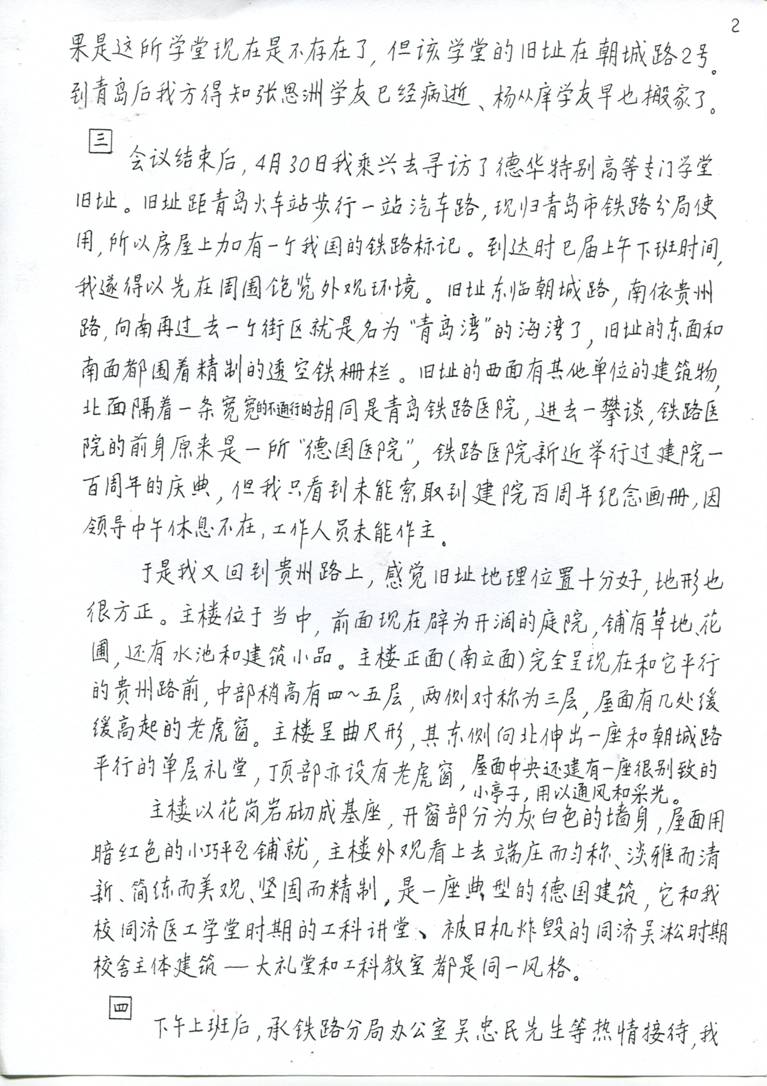 2
果是这所学堂现在是不存在了，但该学堂的旧址在朝城路2号。
到青岛后我方得知张思洲学友已经病逝、杨从庠学友早也搬家了。
三
会议结束后，4月30日我乘兴去寻访了德华特别高等专门学堂
旧址。旧址距青岛火车站步行一站汽车路，现归青岛市铁路分局使
用，所以房屋上加有一个我国的铁路标记。到达时已届上午下班时间，
我遂得以先在周围饱览外观环境。旧址东临朝城路，南依贵州
路，向南再过去一个街区就是名为“青岛湾”的海湾了，旧址的东面和
南面都围着精制的透空铁栅栏。旧址的西面有其他单位的建筑物，
北面隔着一条宽宽的不通行的胡同是青岛铁路医院，进去一攀谈，铁路医
院的前身原来是一所“德国医院”，铁路医院新近举行过建院一
百周年的庆典，但我只看到未能索取到建院百周年纪念画册，因
领导中午休息不在，工作人员未能作主。
于是我又回到贵州路上，感觉旧址地理位置十分好，地形也
很方正。主楼位于当中，前面现在辟为开阔的庭院，铺有草地、花
圃，还有水池和建筑小品。主楼正面(南立面)完全呈现在和它平行
的贵州路前，中部稍高有四～五层，两侧对称为三层，屋面有几处缓
缓高起的老虎窗。主楼呈曲尺形，其东侧向北伸出一座和朝城路
平行的单层礼堂，顶部亦设有老虎窗，屋面中央还建有一座很别致的
小亭子，用以通风和采光。
主楼以花岗岩砌成基座，开窗部分为灰白色的墙身，屋面用
暗红色的小巧平瓦铺就，主楼外观看上去端庄而匀称、淡雅而清
新、简练而美观、坚固而精制，是一座典型的德国建筑，它和我
校同济医工学堂时期的工科讲堂、被日机炸毁的同济吴淞时期
校舍主体建筑—大礼堂和工科教室都是同一风格。
四
下午上班后，承铁路分局办公室吴忠民先生等热情接待，我